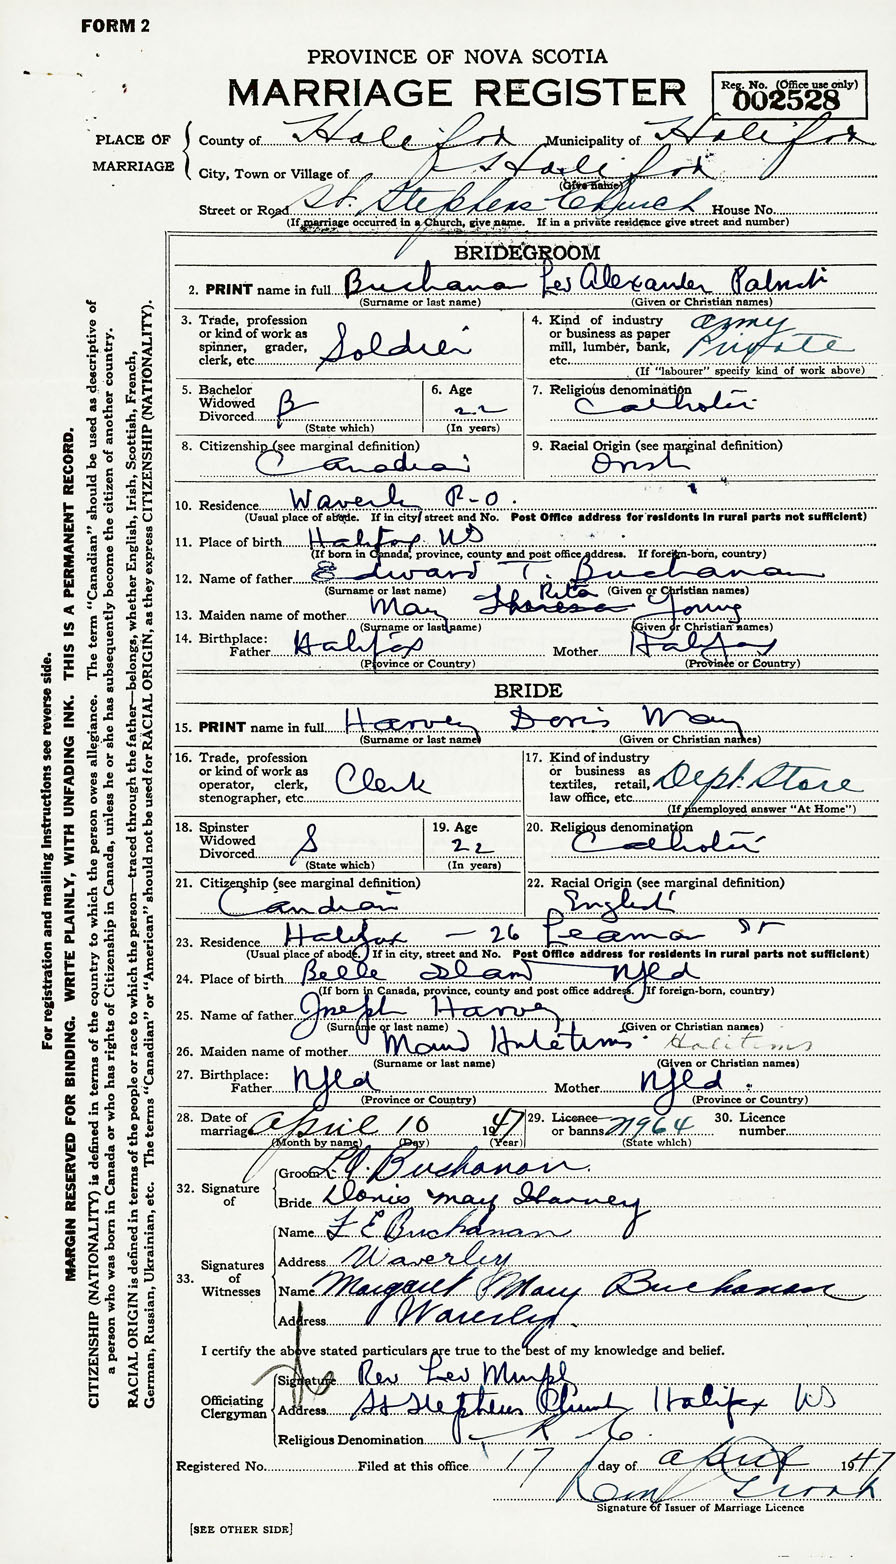 FORM 2
PROVINCE OF NOVA SCOTIA
MARRIAGE REGISTER
Reg. No. (Office use only)
002528
PLACE OF MARRIAGE
County of Halifax Municipality of Halifax
City, Town or Village of Halifax
(Give name)
Street or Road St. Stephens Church House No.
(If marriage occurred in a Church, give name. If in a private residence give street and number)
BRIDEGROOM
2. PRINT name in full Buchanan Leo Alexander
(Surname or last name) (Given or Christian names)
3. Trade, profession or kind of work as spinner, grader, clerk, etc. Soldier
4. Kind of industry or business as paper mill, lumber, bank, etc. Army Private
(If "labourer" specify kind of work above)
5. Bachelor Widowed Divorced B
(State which)
6. Age 22
(In years)
7. Religious denomination Catholic
8. Citizenship (see marginal definition) Canadian
9. Racial Origin (see marginal definition) Irish
10. Residence Waverly P-O.
(Usual place of abode. If in city street and No. Post Office address for residents in rural parts not sufficient)
11. Place of birth Halifax NS
(If born in Canada, province, county and post office address. If foreign-born, country)
12. Name of father Edward T. Buchanan
(Surname or last name) (Given or Christian names)
13. Maiden name of mother Mary Theresa Rita Young
(Surname or last name) (Given or Christian names)
14. Birthplace: Father Halifax Mother Halifax
(Province or Country) (Province or Country)
BRIDE
15. PRINT name in full Harvey Doris May
(Surname or last name) (Given or Christian names)
16. Trade, profession or kind of work as operator, clerk, stenographer, etc. Clerk
17. Kind of industry or business as textiles, retail, law office, etc. Dept. Store
(If unemployed answer "At Home")
18. Spinster Widowed Divorced S
(State which)
19. Age 22
(In years)
20. Religious denomination Catholic
21. Citizenship (see marginal definition) Candian
22. Racial Origin (see marginal definition) English
23. Residence Halifax - 26 Leaman St
(Usual place of abode. If in city, street and No. Post Office address for residents in rural parts not sufficient)
24. Place of birth Belle Island Nfld
(If born in Canada, province, county and post office address. If foreign-born, country)
25. Name of father Joseph Harvey
(Surname or last name) (Given or Christian names)
26. Maiden name of mother Maud
(Surname or last name) (Given or Christian names)
27. Birthplace: Father Nfld Mother Nfld.
(Province or Country) (Province or Country)
28. Date of marriage April 10 1947
(Month by name) (Day) (Year)
29. Licence or banns N964
(State which)
30. Licence number
32. Signature of
Groom L.A. Buchanan.
Bride Doris May Harvey
33. Signatures of Witnesses
Name F E Buchanan
Address Waverley
Name Margaret Mary Buchanan
Address Waverley.
I certify the above stated particulars are true to the best of my knowledge and belief.
Officiating Clergyman
Signature Rev Leo
Address St Stephens Church Halifax NS
Religious Denomination R C.
Registered No. Filed at this office 17 day of April 1947
Signature of Issuer of Marriage Licence
[SEE OTHER SIDE]
For registration and mailing instructions see reverse side.
MARGIN RESERVED FOR BINDING. WRITE PLAINLY, WITH UNFADING INK. THIS IS A PERMANENT RECORD.
CITIZENSHIP (NATIONALITY) is defined in terms of the country to which the person owes allegiance. The term "Canadian" should be used as descriptive of
a person who was born in Canada or who has rights of Citizenship in Canada, unless he or she has subsequently become the citizen of another country.
RACIAL ORIGIN is defined in terms of the people or race to which the person—traced through the father—belongs, whether English, Irish, Scottish, French,
German, Russian, Ukrainian, etc. The terms "Canadian" or "American" should not be used for RACIAL ORIGIN, as they express CITIZENSHIP (NATIONALITY).